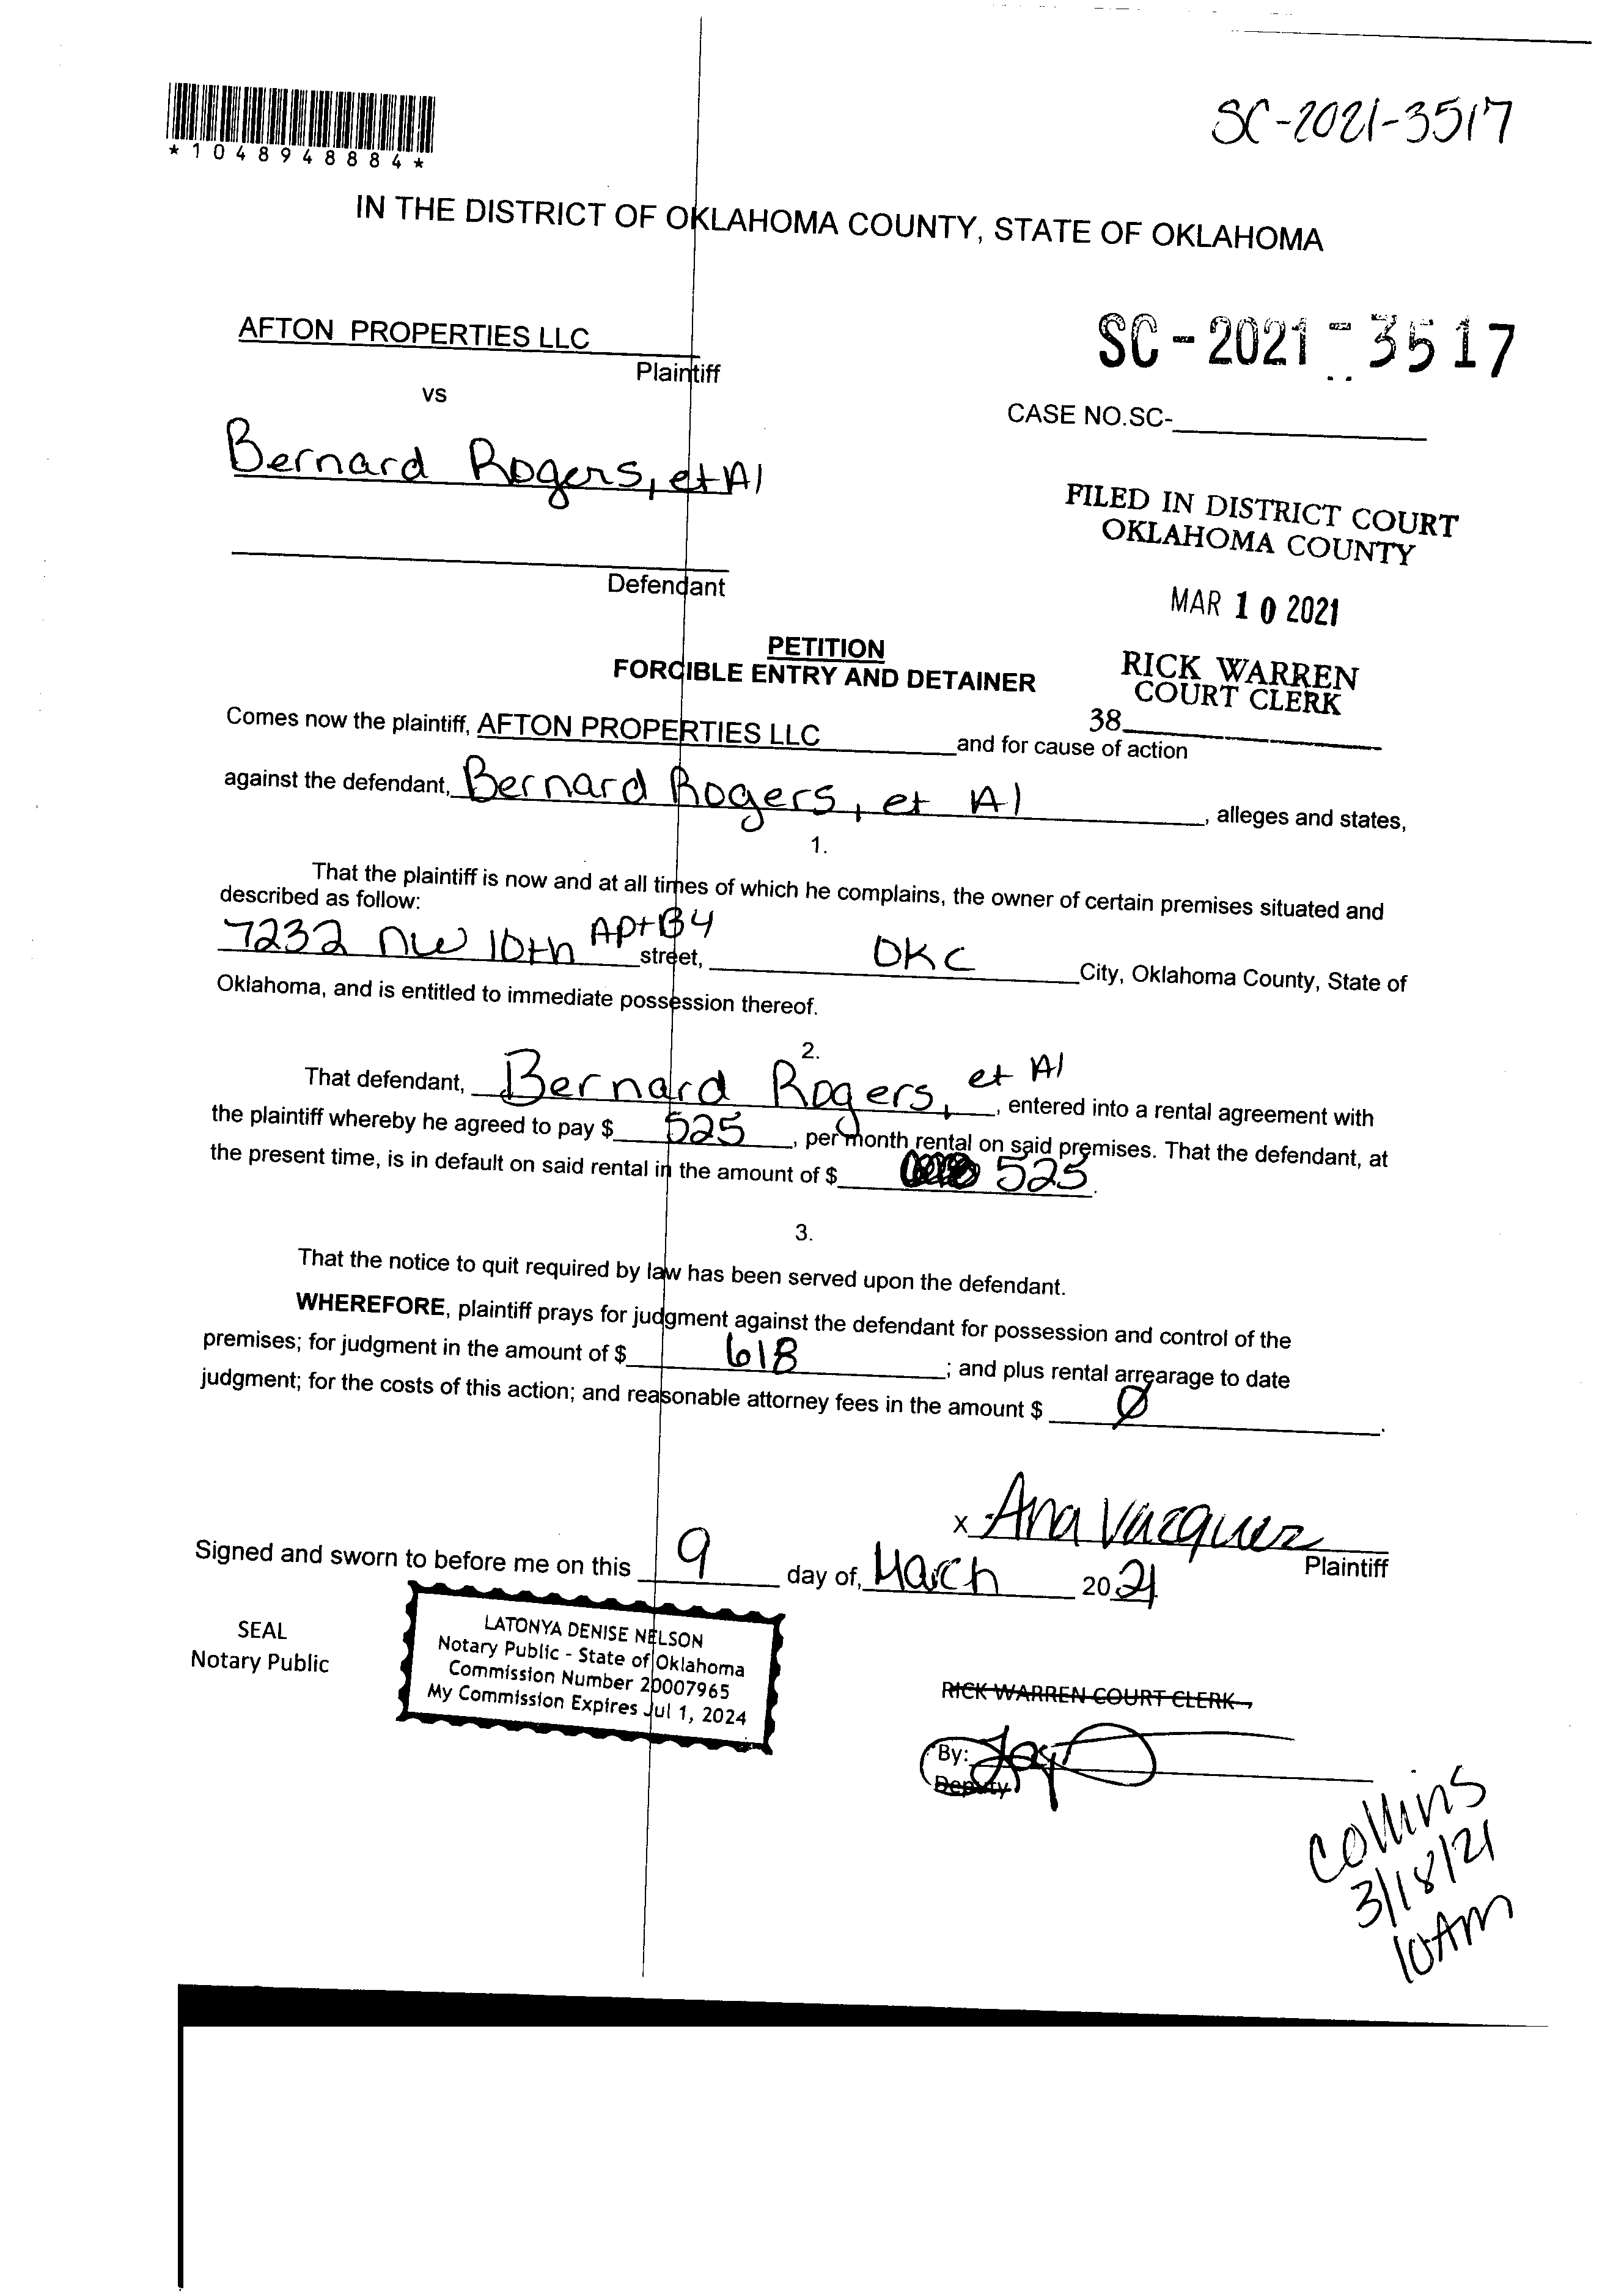 SC-2021-3517
*1048948884*
IN THE DISTRICT OF OKLAHOMA COUNTY, STATE OF OKLAHOMA
AFTON PROPERTIES LLC
Plaintiff
vs
SC-2021-3517
CASE NO.SC-
Bernard Rogers, et Al
Defendant
FILED IN DISTRICT COURT
OKLAHOMA COUNTY
MAR 10 2021
RICK WARREN
COURT CLERK
38
PETITION
FORCIBLE ENTRY AND DETAINER
Comes now the plaintiff, AFTON PROPERTIES LLC and for cause of action
against the defendant, Bernard Rogers, et Al, alleges and states,
1.
That the plaintiff is now and at all times of which he complains, the owner of certain premises situated and
described as follow:
7232 NW 10th Apt B4 street, OKC City, Oklahoma County, State of
Oklahoma, and is entitled to immediate possession thereof.
2.
That defendant, Bernard Rogers, et Al, entered into a rental agreement with
the plaintiff whereby he agreed to pay $ 525, per month rental on said premises. That the defendant, at
the present time, is in default on said rental in the amount of $ 525.
3.
That the notice to quit required by law has been served upon the defendant.
WHEREFORE, plaintiff prays for judgment against the defendant for possession and control of the
premises; for judgment in the amount of $ 618; and plus rental arrearage to date
judgment; for the costs of this action; and reasonable attorney fees in the amount $ 0.
x Ana Vazquez
Plaintiff
Signed and sworn to before me on this 9 day of, March 2021
SEAL
Notary Public
LATONYA DENISE NELSON
Notary Public - State of Oklahoma
Commission Number 20007965
My Commission Expires Jul 1, 2024
RICK WARREN COURT CLERK,
By:
Deputy
Collins
3/18/21
10AM